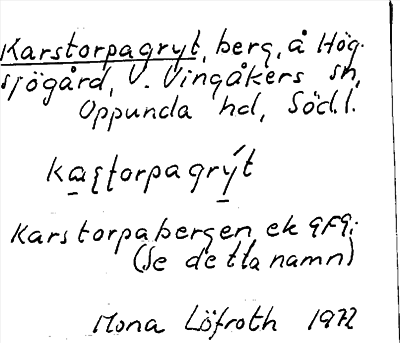 Karstorpagryt, berg, å Hög-
sjögård, V. Vingåkers sn,
Oppunda hd, Södl.
kaʂtorpagrýt
Karstorpabergen ek 9F9;
(Se detta namn)
Mona Löfroth 1972